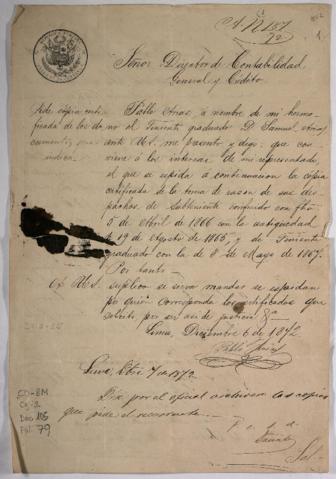 Señor Director de Contabilidad
General y Crédito
Pide copia certi- Pablo Arias, á nombre de mi herma-
ficada de los do- no el Teniente graduado D. Samuel Arias,
cumentos que ante US. me presento y digo: que con-
indica. viene á los intereses de mi representado,
el que se expida á continuacion la copia
certificada de la toma de razon de sus des-
pachos de Subteniente conferido con fha
5 de Abril de 1866 con la antigüedad
19 de Agosto de 1865, y de Teniente
graduado con la de 8 de Mayo de 1867.
Por tanto
A US. suplico se sirva mandar se expidan
por quien corresponda los certificados que
solicito, por ser así de justicia &a
Lima, Diciembre 6 de 1872
Pablo Arias
Lima, Dbre 7 de 1872
Dé por el oficial archivero las copias
que pide el recurrente.
CO-BM
Cj-2
Doc 185
Fol. 79